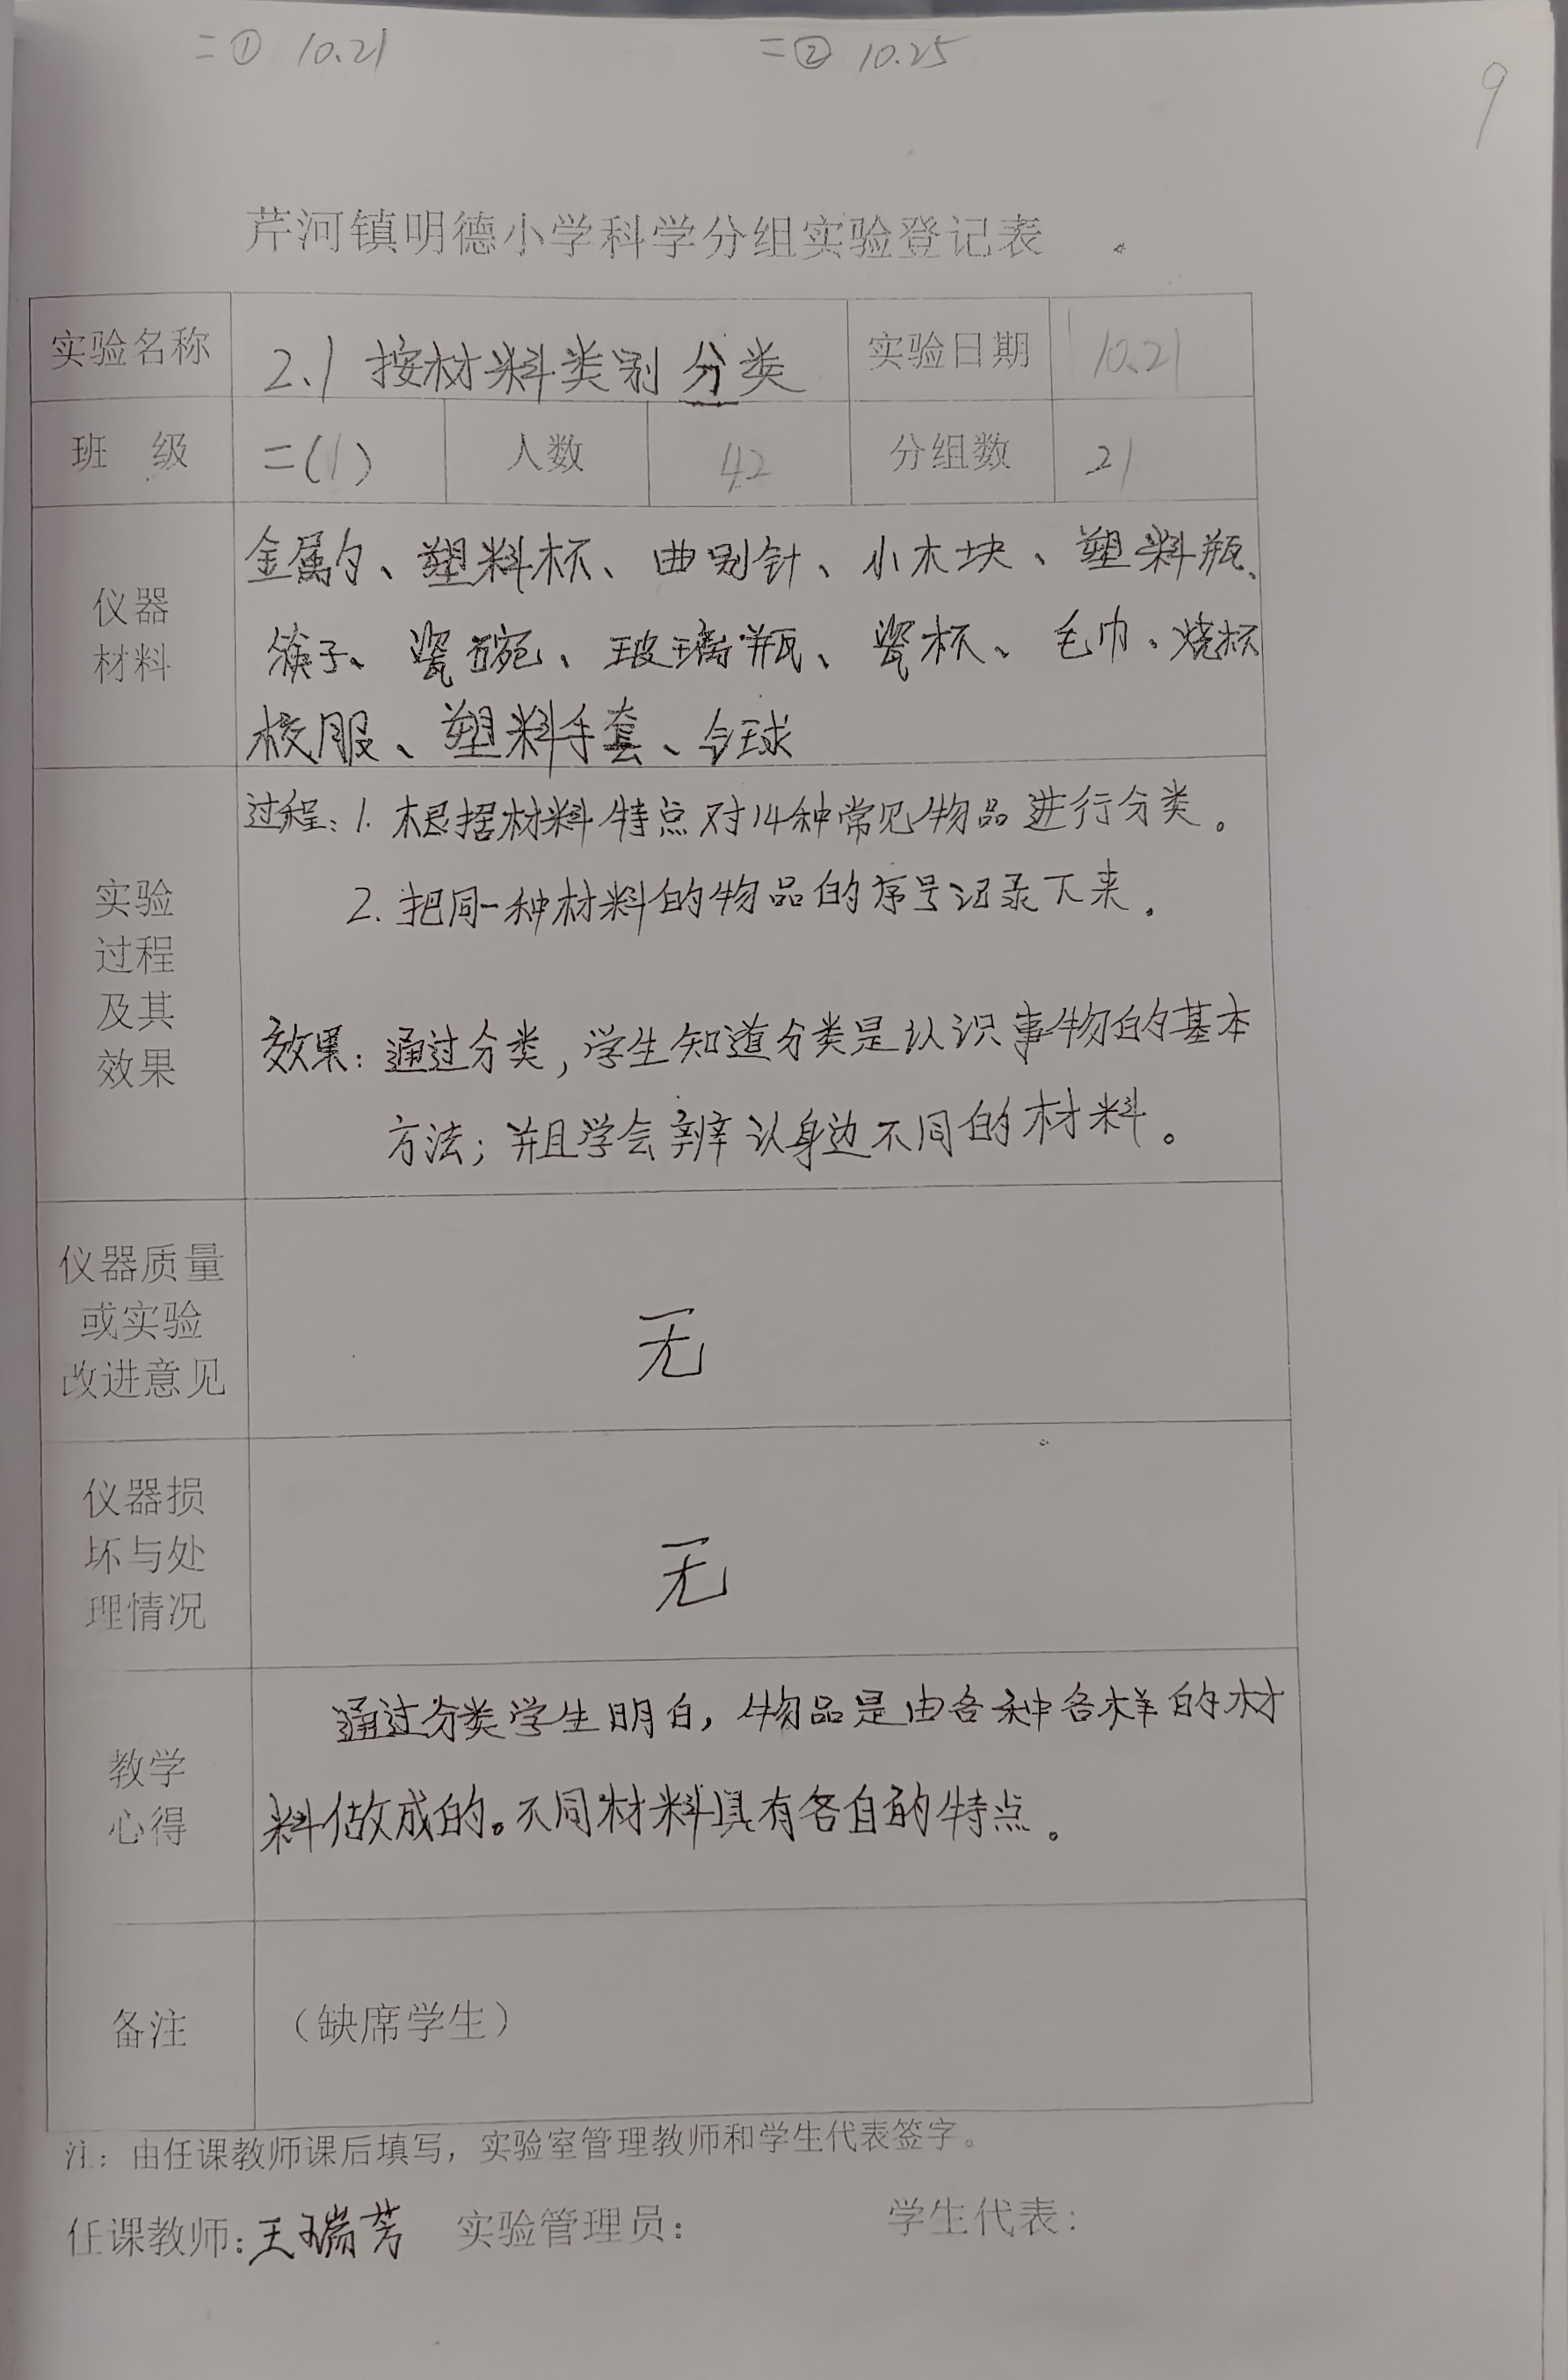 二① 10.21 二② 10.25
9
芹河镇明德小学科学分组实验登记表
实验名称 2.1 按材料类别分类 实验日期 10.21
班 级 二(1) 人数 42 分组数 21
仪器
材料
金属勺、塑料杯、曲别针、小木块、塑料瓶、
筷子、瓷碗、玻璃瓶、瓷杯、毛巾、烧杯
校服、塑料手套、球
实验
过程
及其
效果
过程:1. 根据材料特点对14种常见物品进行分类。
2. 把同一种材料的物品的序号记录下来。
效果:通过分类,学生知道分类是认识事物的基本
方法;并且学会辨认身边不同的材料。
仪器质量
或实验
改进意见
无
仪器损
坏与处
理情况
无
教学
心得
通过分类学生明白,物品是由各种各样的材
料做成的。不同材料具有各自的特点。
备注 (缺席学生)
注:由任课教师课后填写,实验室管理教师和学生代表签字。
任课教师:王瑞芳 实验管理员: 学生代表: